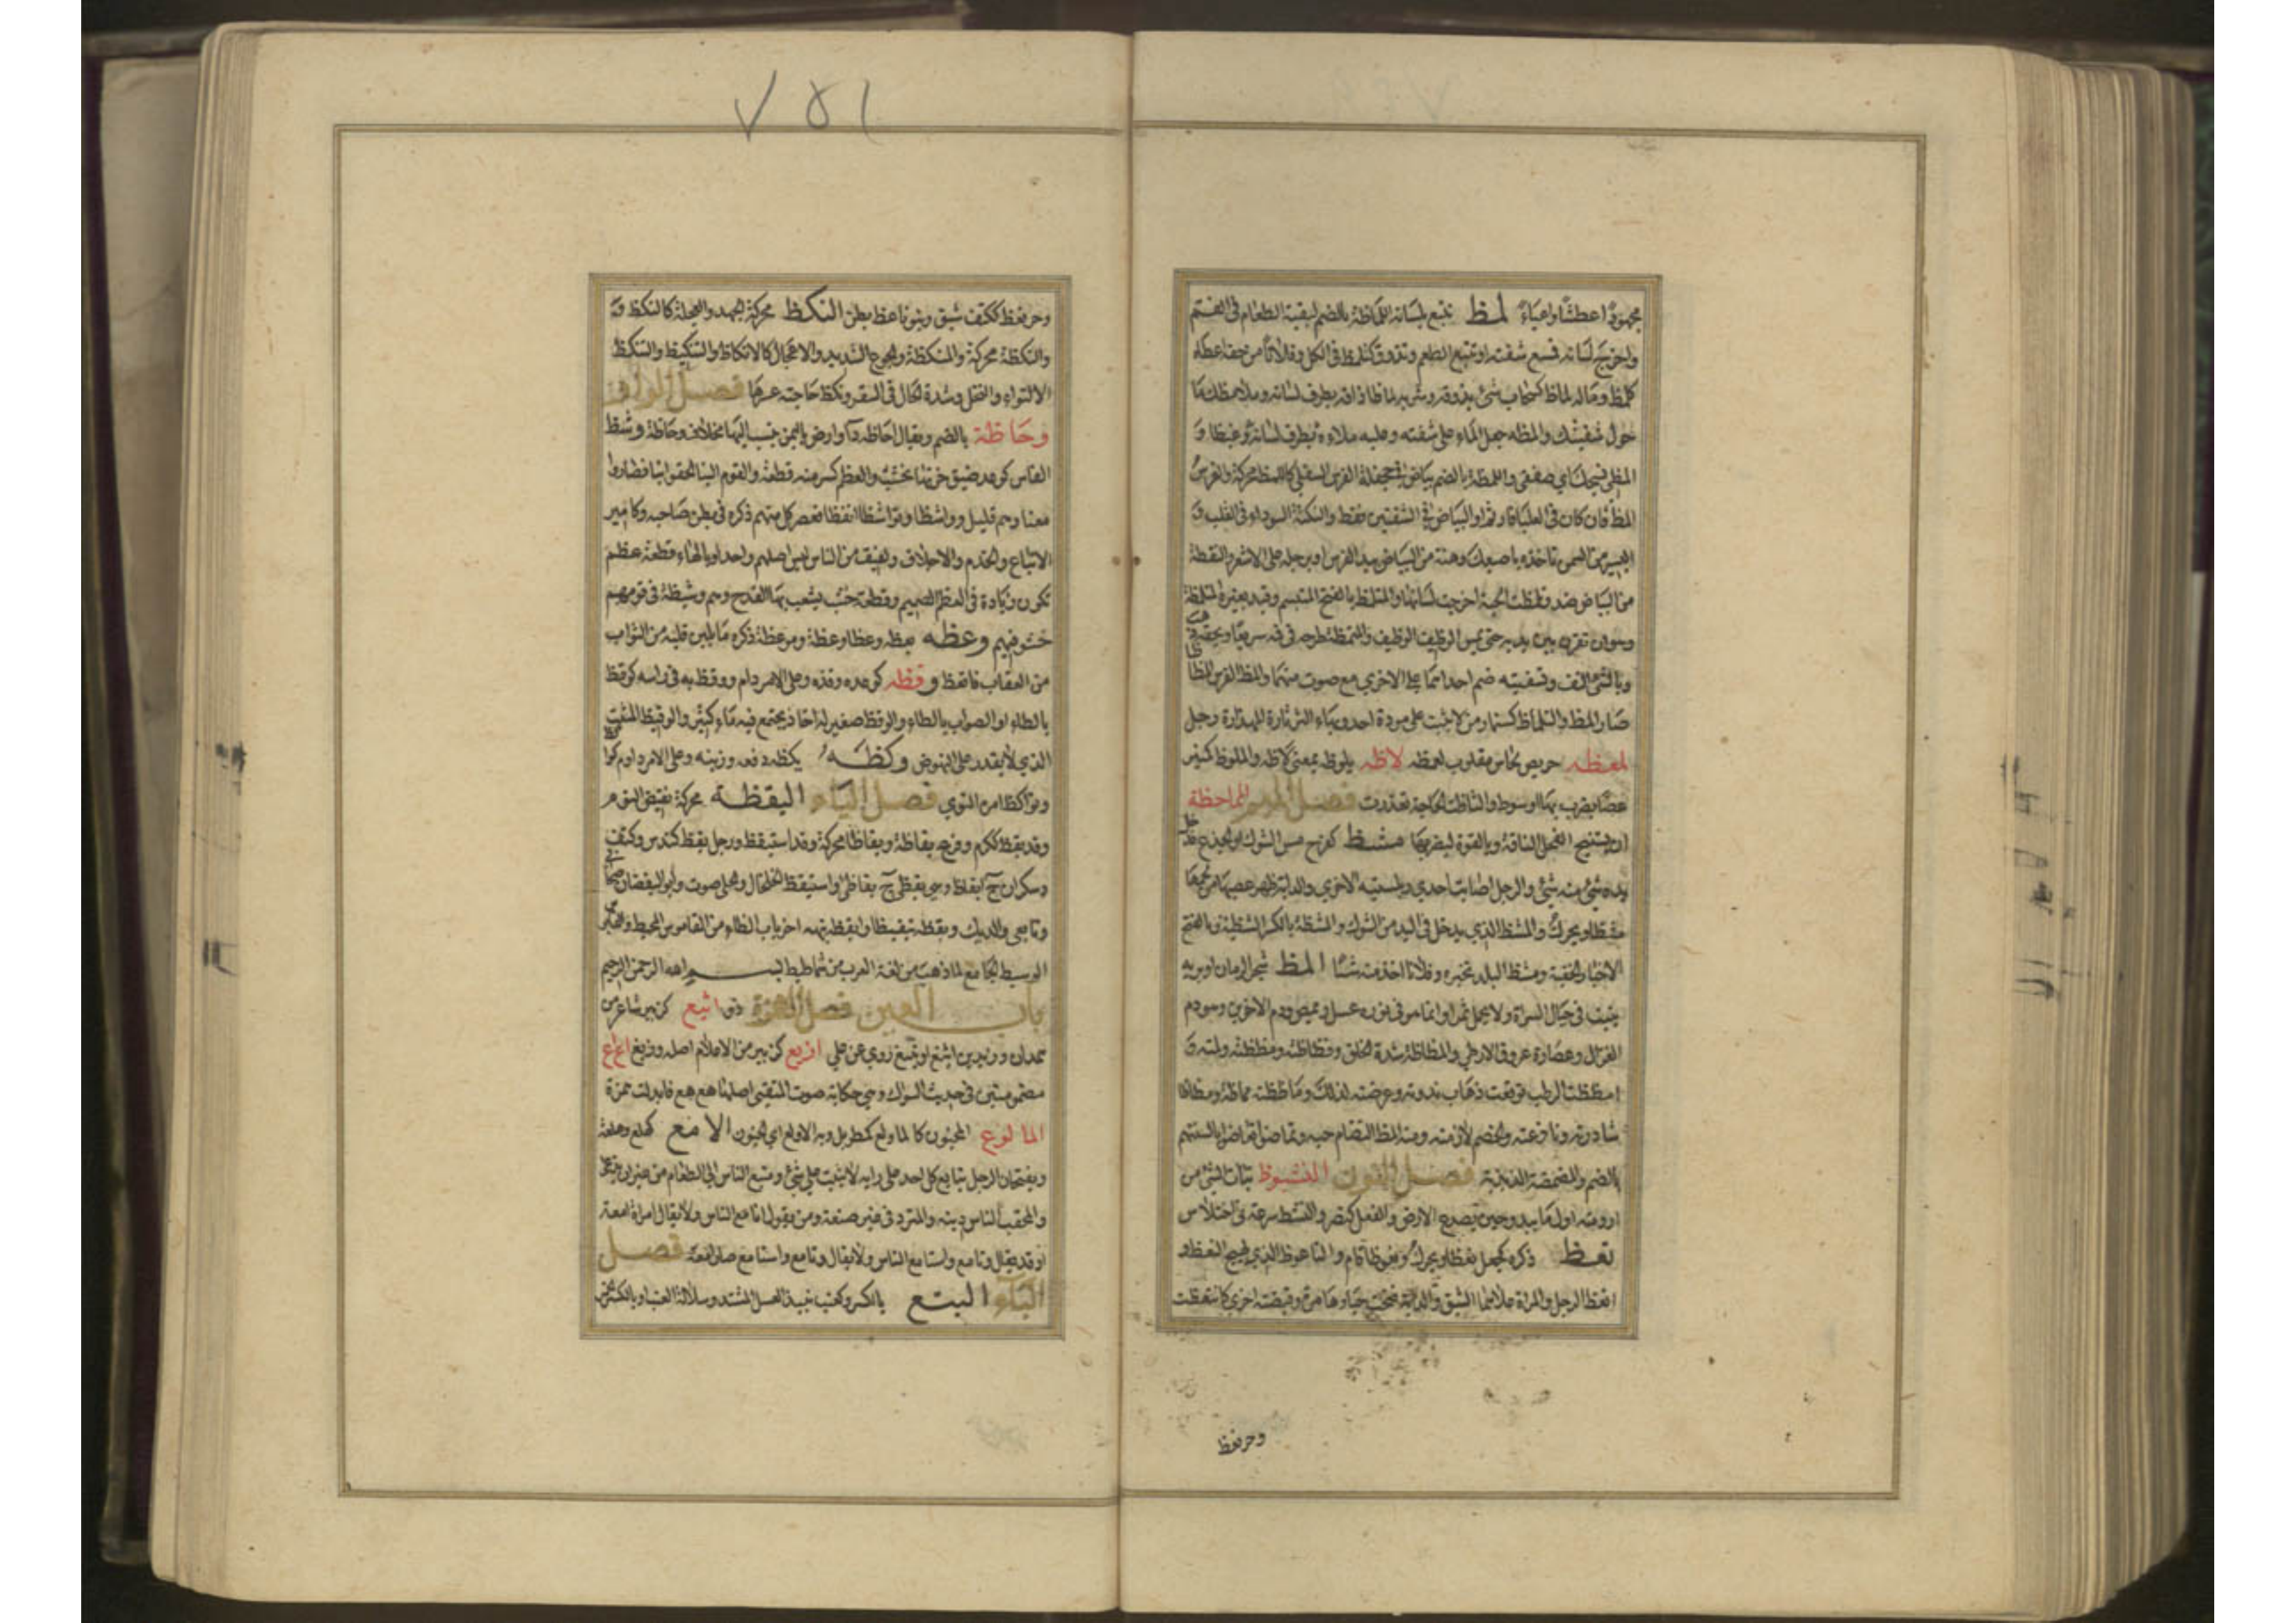 مجهودًا عطشًا واعياءً لمظ تتبع بلسانه اللماظة بالضم لبقية الطعام في الفم
واخرج لسانه فمسح شفته او تتبع الطعم وتذوق كتلمظ في الكل وفلانًا من حقه اعطاه
كلمظ وماله لماظ كسحاب شئ يذوقه وشربه لماظا ذاقه بطرف لسانه وملامظك ما
حول شفتيك والمظه جعل الماء على شفته وعليه ملاءه بطرف لسانه غيظا و
واللمظة بالضم بياض في جحفلة الفرس السفلى كاللمظ محركة والفرس
المظ فان كان في العليا فارثم او البياض في الشفتين فقط والنكتة السوداء في القلب و
اليسير من السمن تاخذه باصبعك وهنة من البياض بيد الفرس او برجله على الاشعر والنقطة
من البياض ضد وتلمظت الحية اخرجت لسانها والمتلمظ بالفتح المتبسم وقيد بعيره المتلمظة
وهو ان تقرن بين يديه حتى يمس الوظيف الوظيف والتمظه طرحه في فيه سريعًا وبحقه
وبالشئ التف وبشفتيه ضم احداهما على الاخرى مع صوت منهما والمظ الفرس المظاظا
صار المظ والتلماظ كسنمار من لا يثبت على مودة احد وبهاء الثرثارة المهذارة رجل
لمعظه حريص لحاس مقلوب لعمظه لاظه يلوظه بمعنى لاظه والملوظ كمنبر
عصا يضرب بها او سوط والتاظت الحاجة تعذرت فصل الميم المماحظة
ان يستنيخ الفحل الناقة وبالقوة ليضربها مشظ كفرح مس الشوك او الجذع فدخل
يده شئ منه شئ والرجل اصابت احدى ربلتيه الاخرى والدابة ظهر عصبها من لحمها
مشظا ويحرك والمشظ الذي يدخل في اليد من الشوك والمشظة بالكسر الشظية وبالفتح
الاخبار الخفية ومشظ البلد تخبره وفلانا اخذ منه شيئًا المظ شجر الرمان او بريه
ينبت في جبال السراة ولا يحمل ثمرا وانما هو في نوره عسل ويمص ودم الاخوين وهو دم
الغزال وعصارة عروق الارطى والمظاظة شدة الخلق وفظاظته ومظظته ولته و
امظظت الرطب توقعت ذهاب ندوته وعرضته لذلك وماظظته مماظة ومظاظا
شاددته ونازعته والخصم لازمته ومنه المظ لتضام حبه وتماضوا تعاضوا بالسنتهم
بالضم والمضمضة الذبذبة فصل النون النشوظ نبات الشئ من
ارومته اول ما يبدو حين يصدع الارض والفعل كنصر والنشظ سرعة في اختلاس
نعظ ذكره كجعل نعظا ويحرك ونعوظا قام والناعوظ الذي يهيج النعظ و
انعظ الرجل والمراة علاهما الشبق والدابة فتحت حياءها مرة وقبضته اخرى كانتعظت
وحر نعظ
٧٥١
وحر نعظ ككتف شبق وبنو ناعظ بطن النكظ محركة الجهد والعجلة كالنكظ و
والنكظة محركة والمنكظة والجوع الشديد والاعجال كالانكاظ والتنكيظ والتنكظ
الالتواء والتنقل وشدة الحال في السفر ونكظ حاجته عسرها فصل الواو
وحاظة بالضم ويقال احاظه د او ارض باليمن ينسب اليها مخلاف وحاظة وشظ
الفاس كوعد ضيق خرتها بخشب والعظم كسر منه قطعة والقوم الينا لحقوا بنا فصاروا
معنا وهم قليل وواشظا وتواشظا انعظا فعصر كل منهم ذكره في بطن صاحبه وكامير
الاتباع والخدم والاحلاف ولفيف من الناس ليس اصلهم واحدا وبالهاء قطعة عظم
تكون زيادة في العظم الصميم وقطعة خشب يشعب بها القدح وهم وشيظة في قومهم
حشو فيهم وعظه يعظه وعظا وعظة وموعظة ذكره ما يلين قلبه من الثواب
من العقاب فاتعظ وقظه كوعده وقذه وعلى الامر دام ووقظ به في راسه كوقط
بالطاء او الصواب بالطاء والوقظ صغير له اخاذ يجتمع فيه ماء كثير والوقيظ المثبت
الذي لا يقدر على النهوض وكظه يكظه دفعه وزبنه وعلى الامر داوم كواكظ
وتواكظ امره التوى فصل الياء اليقظة محركة نقيض النوم
وقد يقظ ككرم وفرح يقاظة ويقظا محركة وقد استيقظ ورجل يقظ كندس وكتف
وسكران ج ايقاظ وهي يقظى ج يقاظى واستيقظ الخلخال والحلي صوت وابو اليقظان صحابي
وتابعي والديك ويقظه تيقيظا وايقظه نبهه اخر باب الظاء من القاموس المحيط والقابوس
الوسيط الجامع لما ذهب من لغة العرب شماطيط بسم الله الرحمن الرحيم
باب العين فصل الهمزة ذو اثيع كزبير شاعر من
همدان وزيد بن اثيع او يثيع روى عن علي ازيع كزبير من الاعلام اصله وزيع اع اع
مضمومتين في حديث السواك وهي حكاية صوت المتقيئ اصلها هع هع فابدلت همزة
المالوع المجنون كالماولع كمطربل وبه الاولع اي الجنون الامع كهلع وهلعة
ويفتحان الرجل يتابع كل احد على رايه لا يثبت على شئ ومتبع الناس الى الطعام من غير ان يدعى
والمحقب الناس دينه والمتردد في غير صنعة ومن يقول انا مع الناس ولا يقال امراة امعة
او قد يقال وتامع واستامع الناس ولا يقال وتامع واستامع صار امعة فصل
الباء البتع بالكسر وكعنب نبيذ العسل المشتد وسلالة العنب او بالكسر الخمر